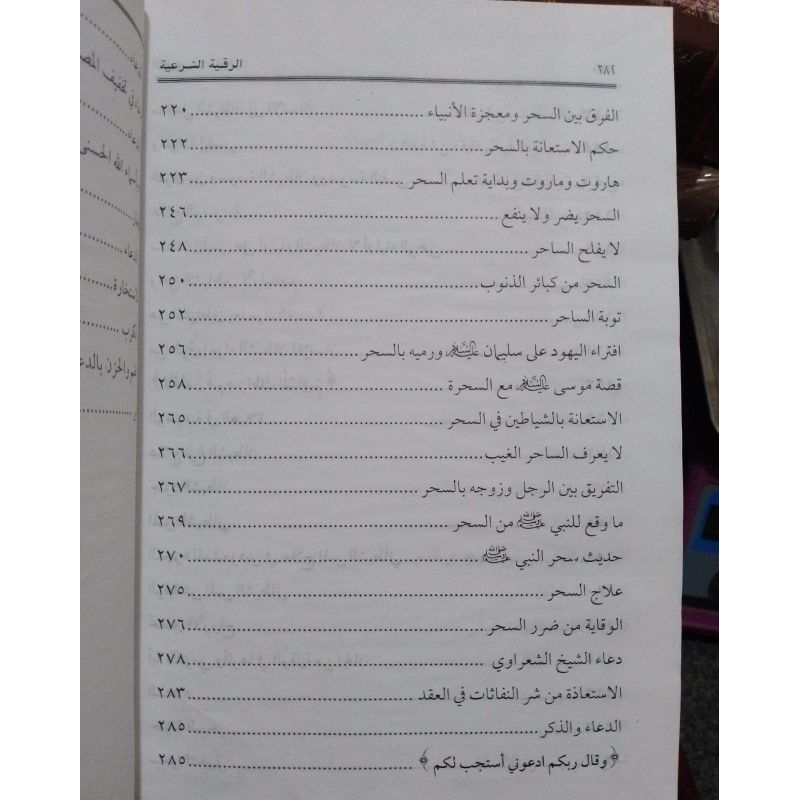 ٣٨٢ الرقية الشرعية
الفرق بين السحر ومعجزة الأنبياء ........ ٢٢٠
حكم الاستعانة بالسحر ........ ٢٢٢
هاروت وماروت وبداية تعلم السحر ........ ٢٢٣
السحر يضر ولا ينفع ........ ٢٤٦
لا يفلح الساحر ........ ٢٤٨
السحر من كبائر الذنوب ........ ٢٥٠
توبة الساحر ........ ٢٥٢
افتراء اليهود على سليمان عليه السلام ورميه بالسحر ........ ٢٥٦
قصة موسى عليه السلام مع السحرة ........ ٢٥٨
الاستعانة بالشياطين في السحر ........ ٢٦٥
لا يعرف الساحر الغيب ........ ٢٦٦
التفريق بين الرجل وزوجه بالسحر ........ ٢٦٧
ما وقع للنبي ﷺ من السحر ........ ٢٦٩
حديث سحر النبي ﷺ ........ ٢٧٠
علاج السحر ........ ٢٧٥
الوقاية من ضرر السحر ........ ٢٧٦
دعاء الشيخ الشعراوي ........ ٢٧٨
الاستعاذة من شر النفاثات في العقد ........ ٢٨٣
الدعاء والذكر ........ ٢٨٥
﴿وقال ربكم ادعوني أستجب لكم﴾ ........ ٢٨٥